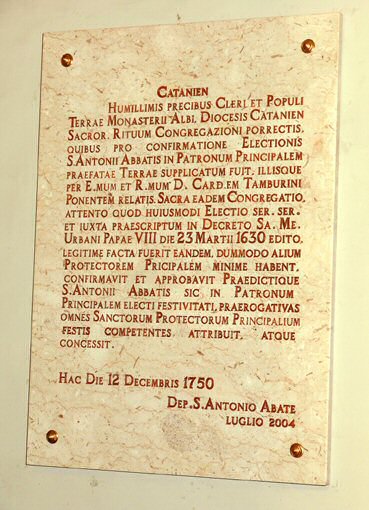 CATANIEN
HUMILLIMIS PRECIBUS CLERI ET POPULI
TERRAE MONASTERII ALBI, DIOCESIS CATANIEN
SACROR. RITUUM CONGREGAZIONI PORRECTIS,
QUIBUS PRO CONFIRMATIONE ELECTIONIS
S.ANTONII ABBATIS IN PATRONUM PRINCIPALEM
PRAEFATAE TERRAE SUPPLICATUM FUIT, ILLISQUE
PER E.MUM ET R.MUM D. CARD.EM TAMBURINI
PONENTEM RELATIS. SACRA EADEM CONGREGATIO,
ATTENTO QUOD HUIUSMODI ELECTIO SER. SER.
ET IUXTA PRAESCRIPTUM IN DECRETO SA. ME.
URBANI PAPAE VIII DIE 23 MARTII 1630 EDITO,
LEGITIME FACTA FUERIT EANDEM, DUMMODO ALIUM
PROTECTOREM PRICIPALEM MINIME HABENT,
CONFIRMAVIT ET APPROBAVIT PRAEDICTIQUE
S.ANTONII ABBATIS SIC IN PATRONUM
PRINCIPALEM ELECTI FESTIVITATI, PRAEROGATIVAS
OMNES SANCTORUM PROTECTORUM PRINCIPALIUM
FESTIS COMPETENTES ATTRIBUIT, ATQUE
CONCESSIT.
HAC DIE 12 DECEMBRIS 1750
DEP. S.ANTONIO ABATE
LUGLIO 2004